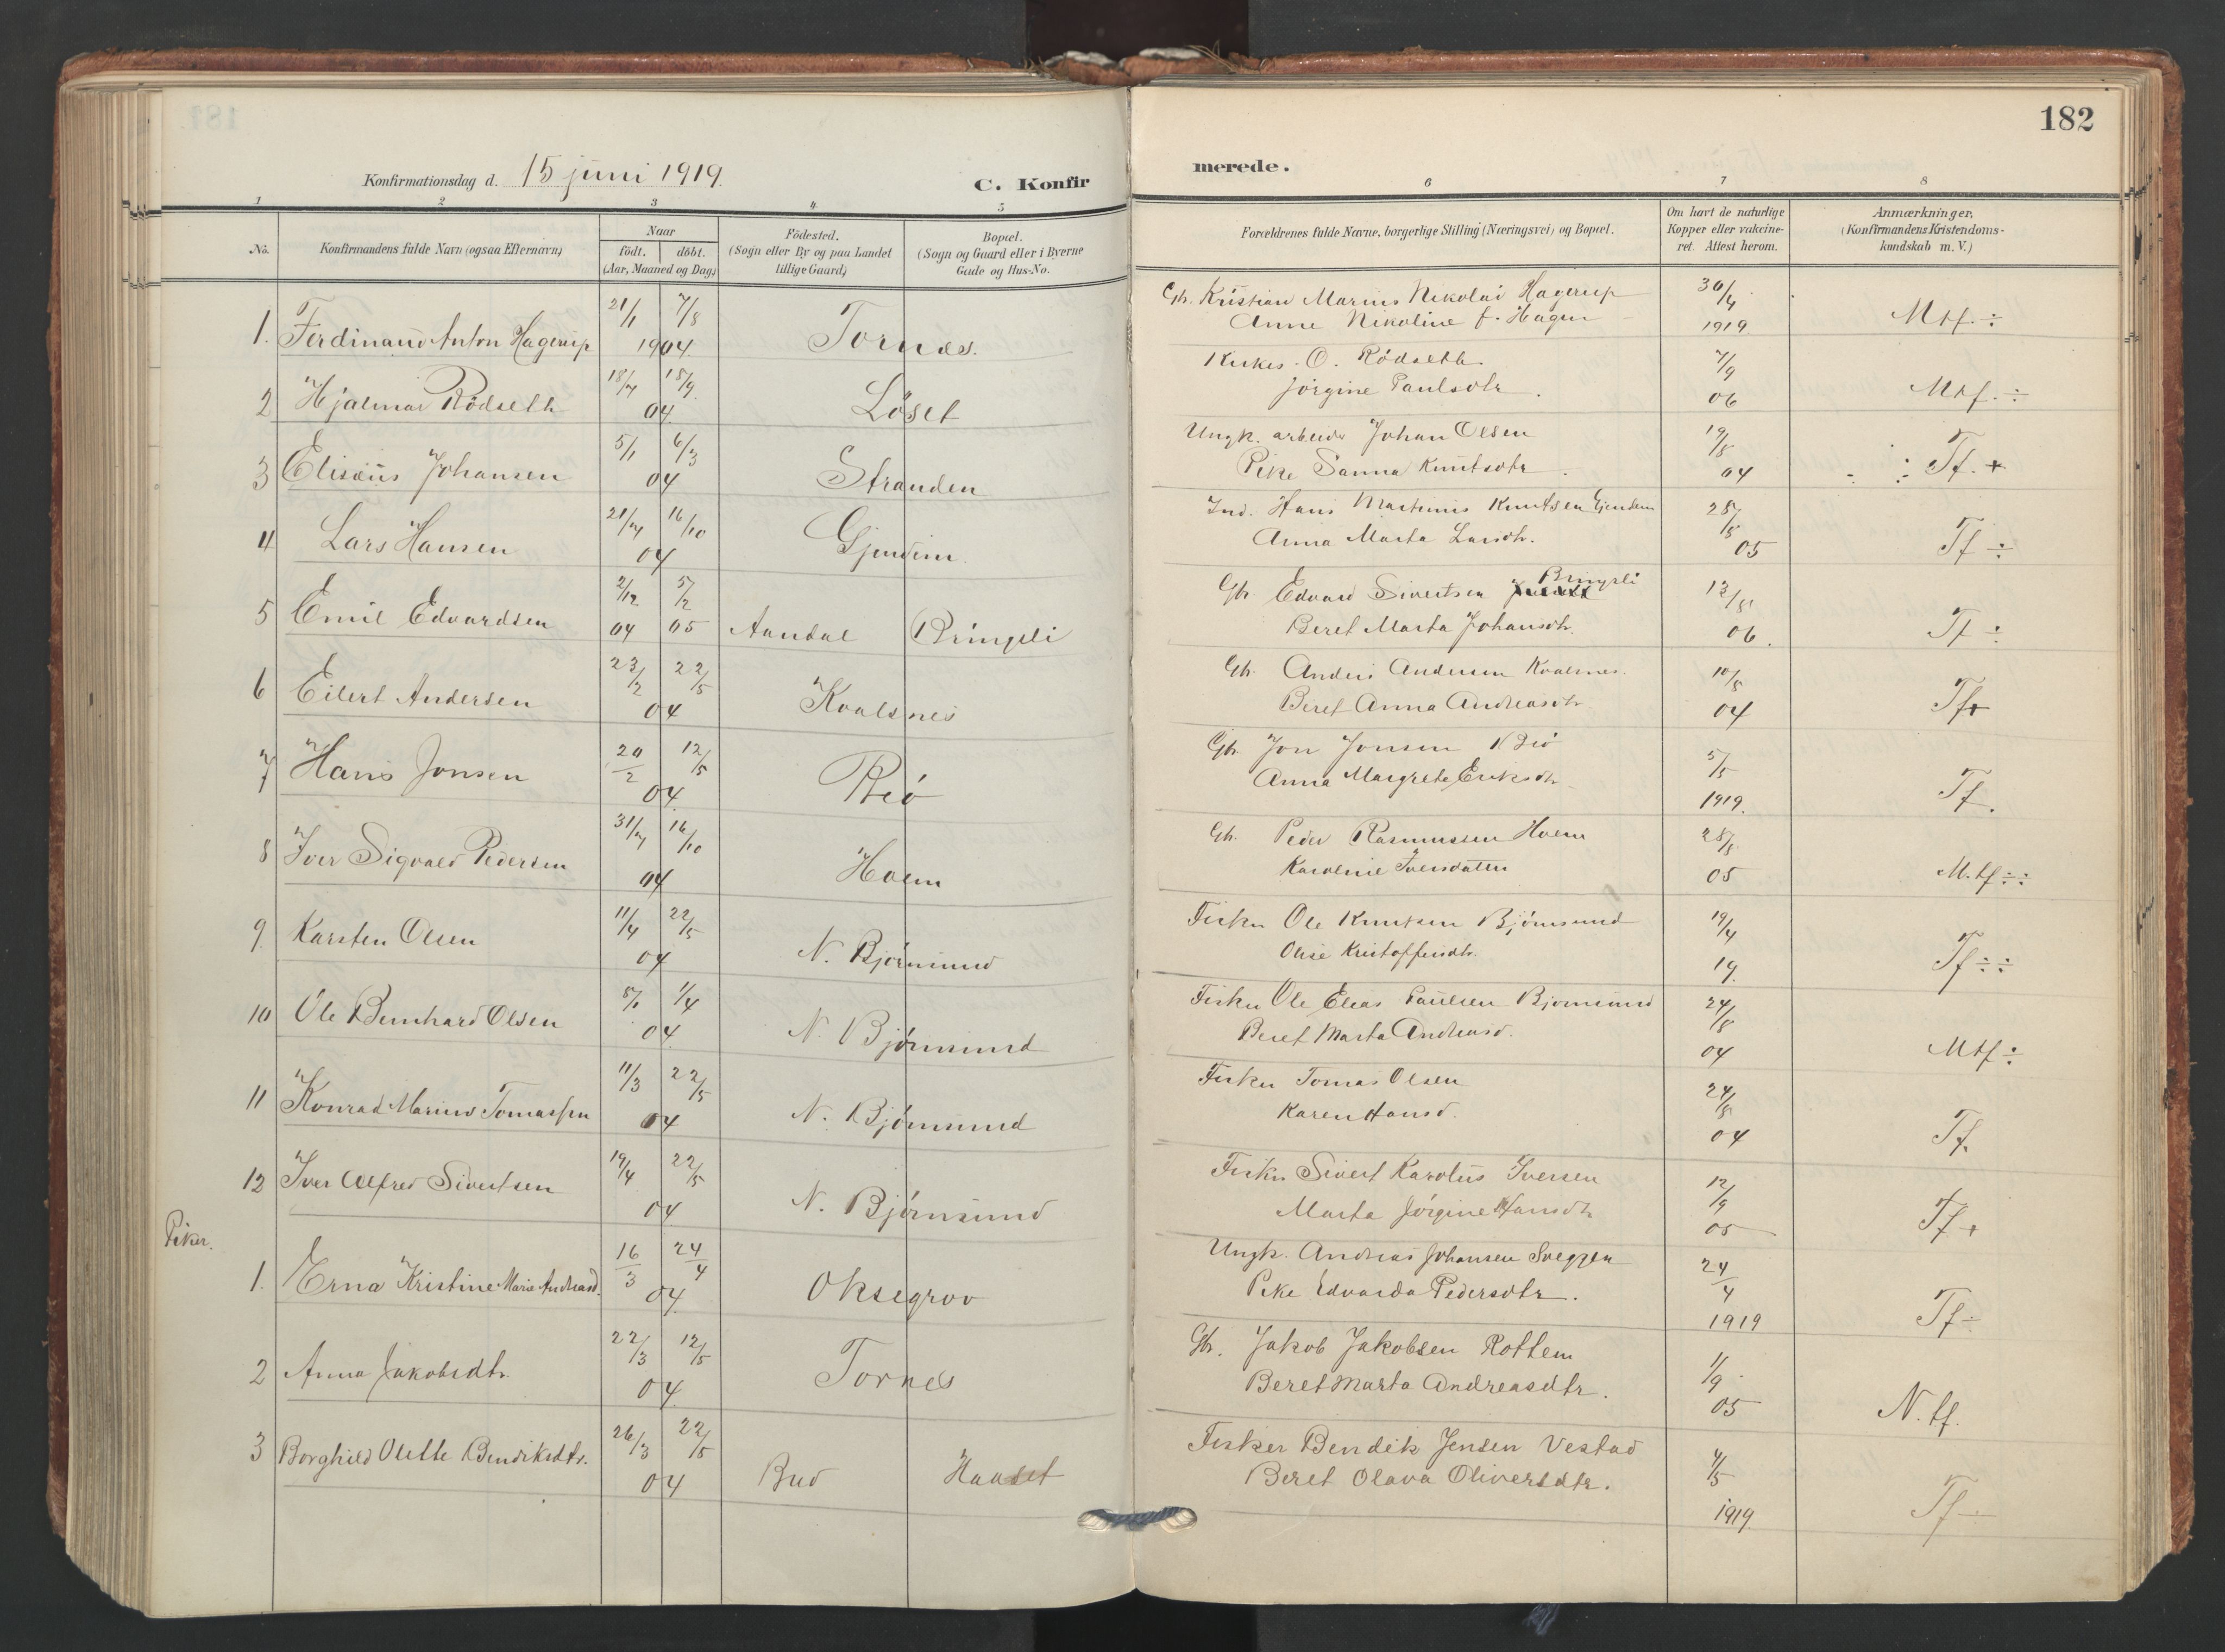 182
Konfirmationsdag d. 15 juni 1919. C. Konfirmerede.
1 2 3 4 5 6 7 8
No.
Konfirmandens fulde Navn (ogsaa Efternavn)
Naar
födt. döbt.
(Aar, Maaned og Dag)
Födested.
(Sogn eller By og paa Landet
tillige Gaard)
Bopæl.
(Sogn og Gaard eller i Byerne
Gade og Hus-No.
Forældrenes fulde Navne, borgerlige Stilling (Næringsvei) og Bopæl.
Om havt de naturlige
Kopper eller vakcine-
ret. Attest herom.
Anmærkninger,
(Konfirmandens Kristendoms-
kundskab m. V.)
1. Ferdinand Anton Hagerup 21/1 7/8 1904 Tornes. Gbr. Kristian Marius Nikolai Hagerup 30/4 1919 Mtf. ÷
Anne Nikoline f. Hagen
2 Hjalmar Rödseth 18/7 18/9 04 Löset Kirkes. O. Rödseth 7/9 06 Mtf. ÷
Jörgine Paulsdtr.
3 Elisæus Johansen 5/1 6/3 04 Stranden Ungk. arbeider Johan Olsen 19/8 04 Tf. +
Pike Sanna Knutsdtr.
4 Lars Hansen 21/7 16/10 04 Gjendem. Ind. Hans Martinus Knutsen Gjendem 28/8 05 Tf ÷
Anna Marta Larsdtr.
5 Emil Edvardsen 2/12 04 5/2 05 Aandal Bringsli Gbr. Edvard Sivertsen Bringsli 12/8 06. Tf ÷
Beret Marta Johansdtr.
6 Eilert Andersen 23/2 22/5 04 Kvalsnes Gbr. Anders Andersen Kvalsnes. 10/8 04 Tf+
Beret Anna Andreasdtr
7 Hans Jonsen 20/2 12/5 04 Bÿö Gbr. Jon Jonsen 5/5 1919. Tf.
Anna Margrete Eriksdtr
8 Iver Sigvald Pedersen 31/7 16/10 04 Hoem Gbr. Peder Rasmussen Hoem 28/8 05 M.tf ÷÷
Karoline Iversdatter
9 Karsten Olsen 11/4 22/5 04 N. Björnsund Fisker Ole Knutsen Björnsund 19/4 19. Tf ÷÷
Olise Kristoffersdtr.
10 Ole Bernhard Olsen 8/1 1/4 04 N. Björnsund Fisker Ole Elias Paulsen Bjornsund 24/8 04 Mtf ÷
Beret Marta Andreasd.
11 Konrad Marius Tomassen 11/3 22/5 04 N. Björnsund Fisker Tomas Olsen 24/8 04 Tf.
Karen Hansd.
12 Iver Alfred Sivertsen 19/4 22/5 04 N. Björnsund Fisker Sivert Karolus Iversen 12/9 05 Tf +
Marta Jörgine Hansdtr
Piker.
1. Erna Kristine Marie Andreasd. 16/3 24/4 04. Oksegrov Ungk. Andreas Johansen Sveggen 24/4 1919 Tf ÷
Pike Edvarda Pedersdtr.
2 Anna Jakobsdtr. 22/3 12/5 04. Tornes Gbr. Jakob Jakobsen Rottem 1/9 05 N. tf.
Beret Marta Andreasdtr.
3 Borghild Olette Bendiksdtr. 26/3 22/5 04 Bud Haaset Fisker Bendik Jensen Vestad 4/5 1919 Tf ÷
Beret Olava Oliversdtr.